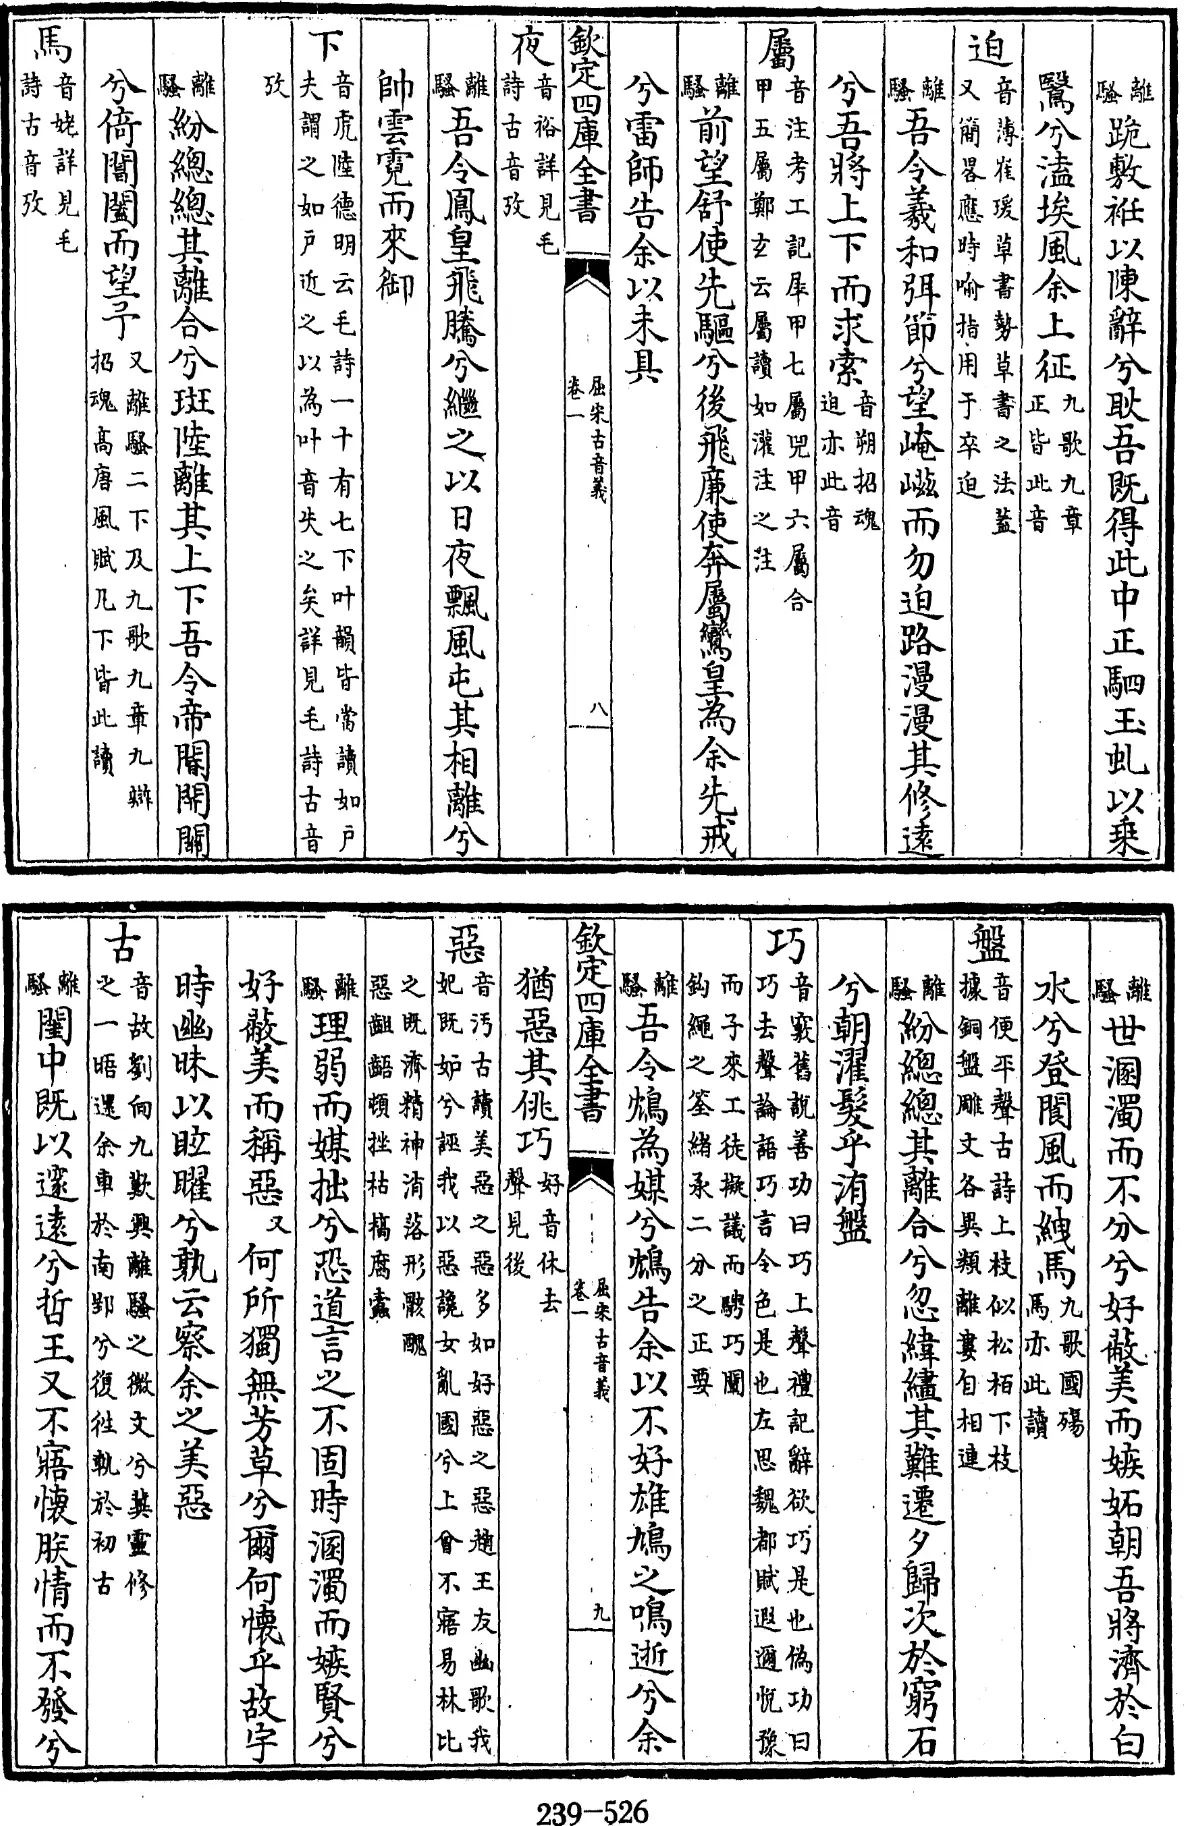 離騷跪敷衽以陳辭兮耿吾既得此中正駟玉虬以乗
鷖兮溘埃風余上征九歌九章正皆此音
迫音薄崔瑗草書勢草書之法葢又簡畧應時喻指用于卒迫
離騷吾令羲和弭節兮望崦嵫而勿迫路漫漫其修逺
兮吾將上下而求索音朔招魂迫亦此音
屬音注考工記犀甲七屬兕甲六屬合甲五屬鄭玄云屬讀如灌注之注
離騷前望舒使先驅兮後飛廉使奔屬鸞皇為余先戒
兮雷師告余以未具
欽定四庫全書 屈宋古音義 卷一 八
夜音裕詳見毛詩古音攷
離騷吾令鳳皇飛騰兮繼之以日夜飄風屯其相離兮
帥雲霓而來御
下音虎陸德明云毛詩一十有七下叶韻皆當讀如戶夫謂之如戶近之以為叶音失之矣詳見毛詩古音
攷
離騷紛總總其離合兮斑陸離其上下吾令帝閽開關
兮倚閶闔而望予又離騷二下及九歌九章九辯招魂高唐風賦凡下皆此讀
馬音姥詳見毛詩古音攷
離騷世溷濁而不分兮好蔽美而嫉妬朝吾將濟於白
水兮登閬風而緤馬九歌國殤馬亦此讀
盤音便平聲古詩上枝似松栢下枝據銅盤雕文各異類離婁自相連
離騷紛總總其離合兮忽緯繣其難遷夕歸次於窮石
兮朝濯髮乎洧盤
巧音竅舊說善功曰巧上聲禮記辭欲巧是也偽功曰巧去聲論語巧言令色是也左思魏都賦遐邇恱豫
而子來工徒擬議而騁巧闡鈎繩之筌緒承二分之正要
離騷吾令鴆為媒兮鴆告余以不好雄鳩之鳴逝兮余
欽定四庫全書 屈宋古音義 卷一 九
猶惡其佻巧好音休去聲見後
惡音污古讀美惡之惡多如好惡之惡趙王友幽歌我妃既妒兮誣我以惡讒女亂國兮上曾不寤易林比
之既濟精神消落形骸醜惡齟齬頓挫枯槁腐蠹
離騷理弱而媒拙兮恐道言之不固時溷濁而嫉賢兮
好蔽美而稱惡又何所獨無芳草兮爾何懷乎故宇
時幽昧以眩曜兮孰云察余之美惡
古音故劉向九歎興離騷之微文兮冀靈修之一晤還余車於南郢兮復往軌於初古
離騷閨中既以邃遠兮哲王又不寤懷朕情而不發兮
239-526